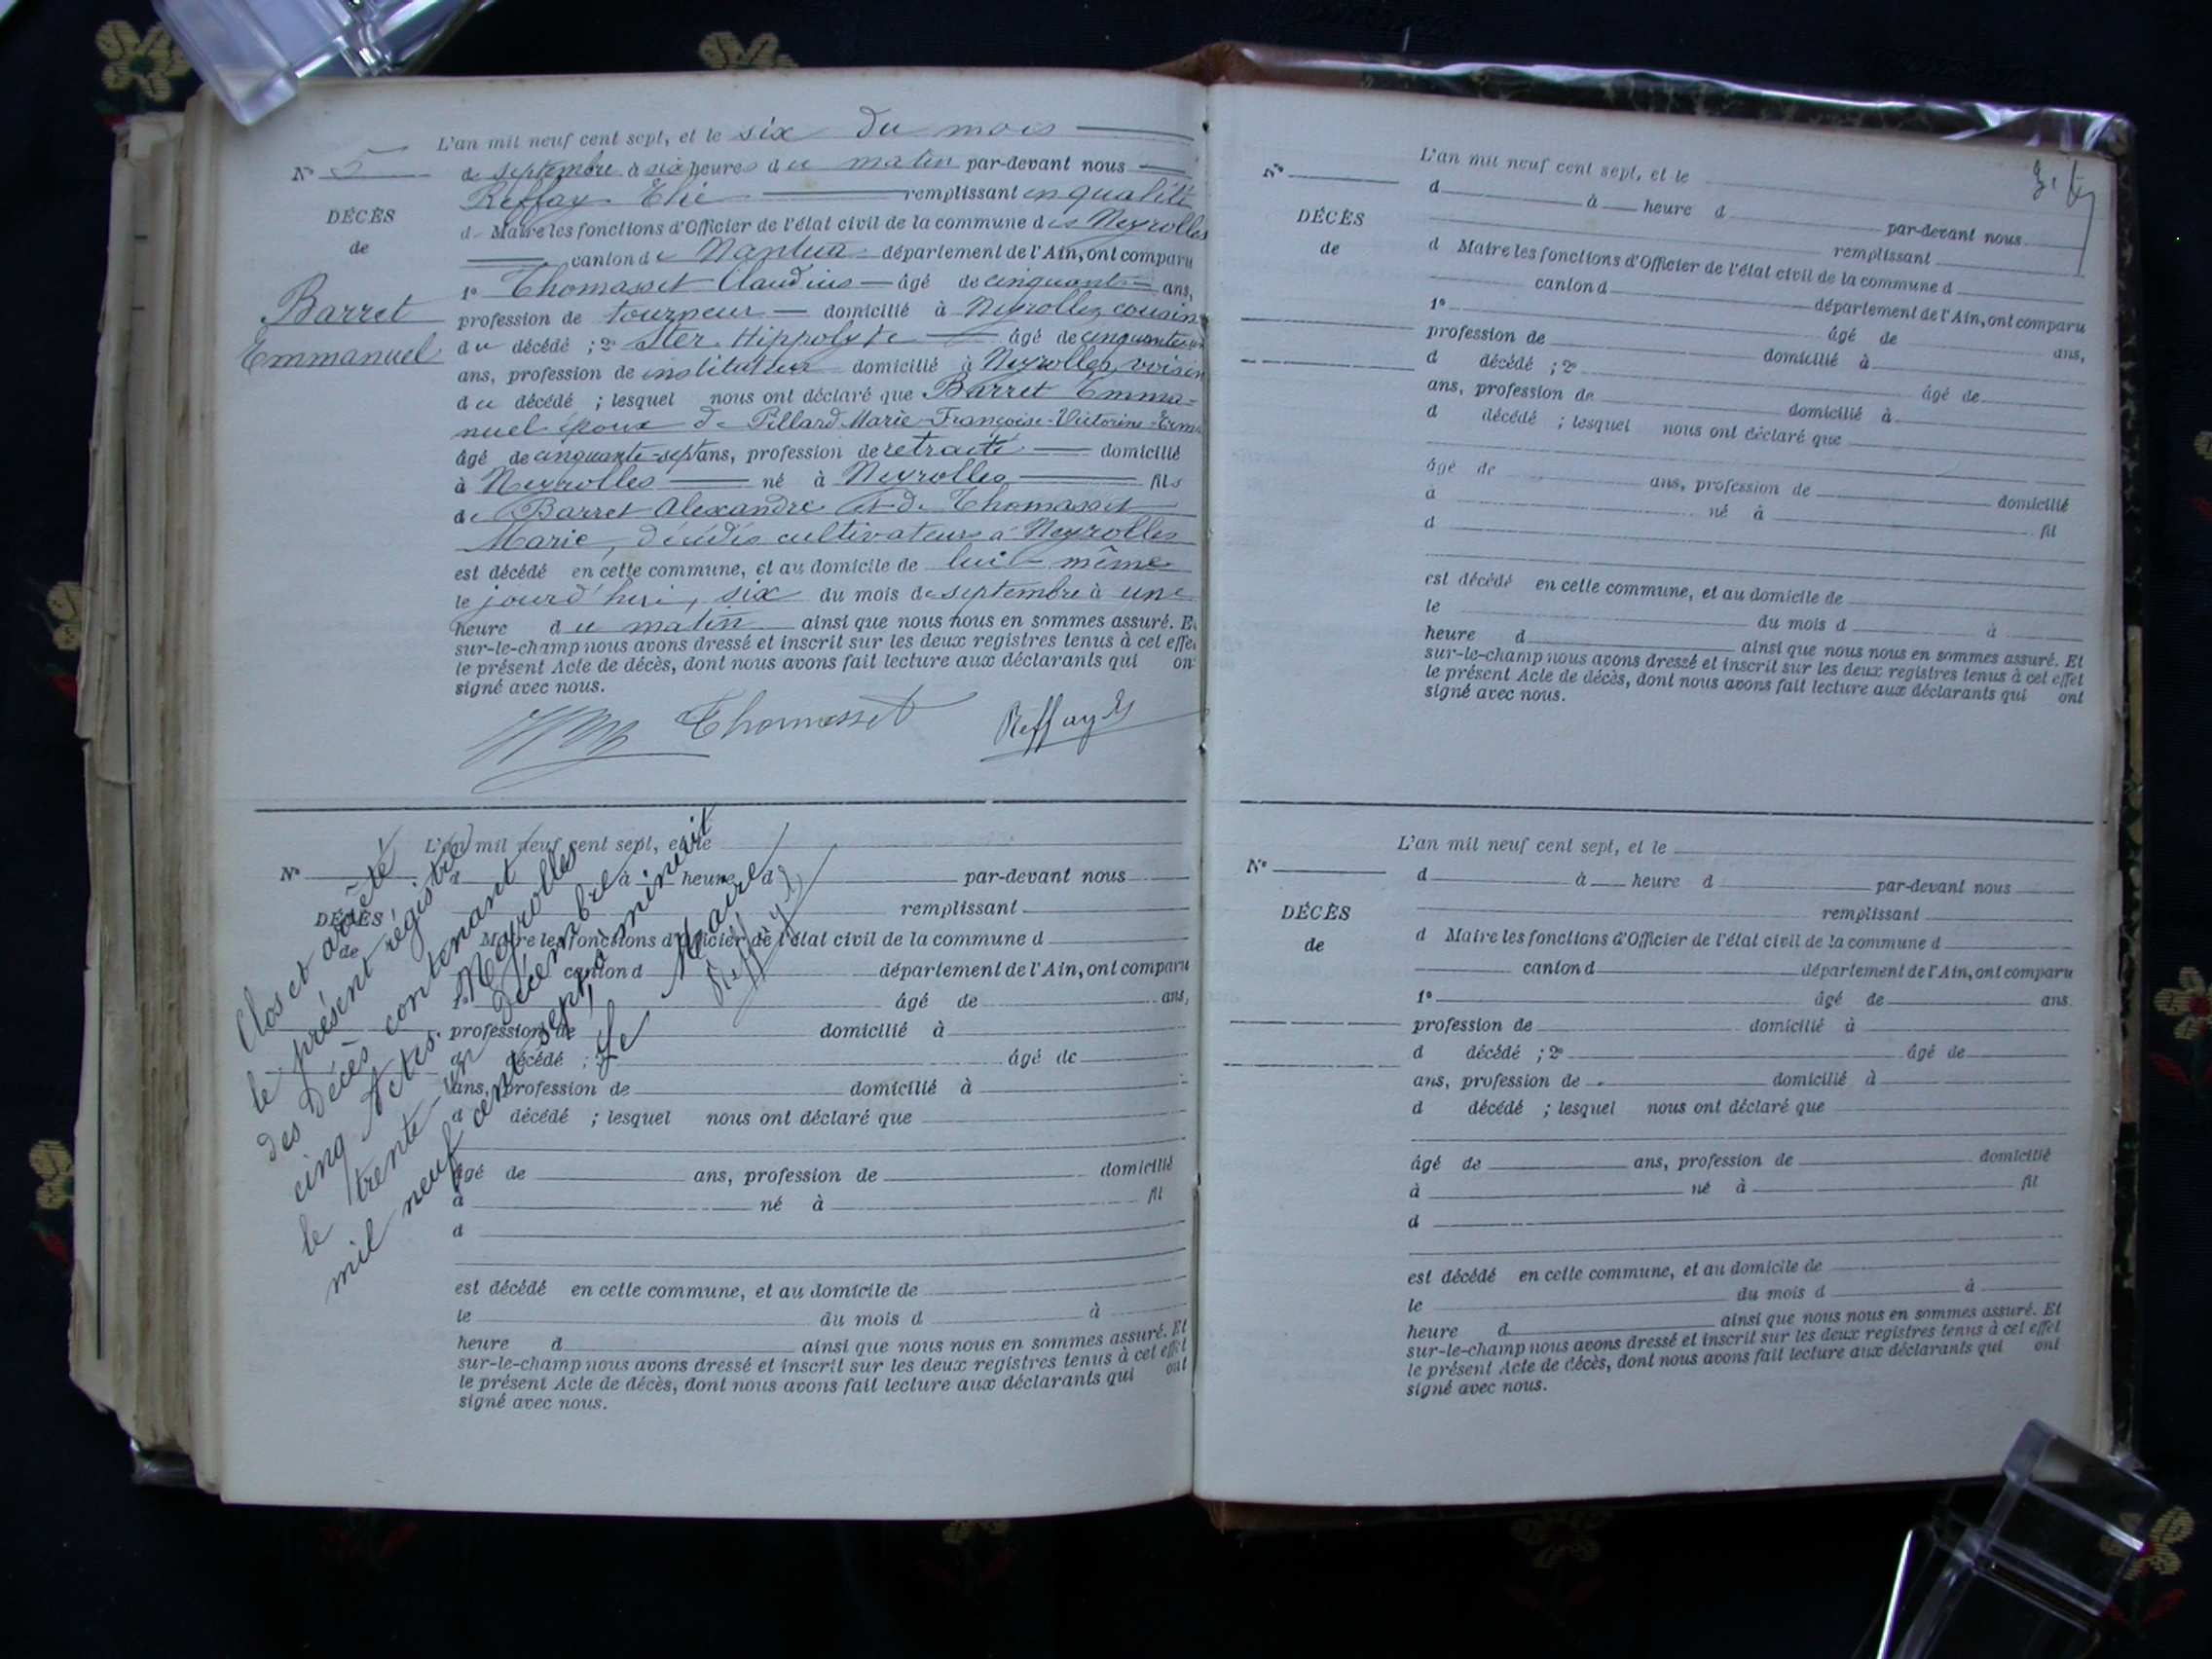 L'an mil neuf cent sept, et le six du mois
N° 5
de septembre à six heures du matin par-devant nous
Reffay Elie remplissant en qualité
DÉCÈS
d. Maire les fonctions d'Officier de l'état civil de la commune des Neyrolles
de
canton de Nantua département de l'Ain, ont comparu
1° Thomasset Claudius âgé de cinquante ans,
Barret
profession de tourneur domicilié à Neyrolles, cousin
Emmanuel
du décédé ; 2° Ster Hippolyte âgé de cinquante
ans, profession de instituteur domicilié à Neyrolles, voisin
du décédé ; lesquel nous ont déclaré que Barret Emma-
nuel époux de Pillard Marie-Françoise-Victorine
âgé de cinquante-sept ans, profession de retraité domicilié
à Neyrolles né à Neyrolles fils
de Barret Alexandre et de Thomasset
Marie, décédés cultivateurs à Neyrolles
est décédé en cette commune, et au domicile de lui-même
le jourd'hui, six du mois de septembre à une
heure du matin ainsi que nous nous en sommes assuré. E
sur-le-champ nous avons dressé et inscrit sur les deux registres tenus à cet effe
le présent Acte de décès, dont nous avons fait lecture aux déclarants qui on
signé avec nous.
Thomasset Reffay
L'an mil neuf cent sept, et le
N°
d à heure d par-devant nous
DÉCÈS
remplissant
de
Maire les fonctions d'Officier de l'état civil de la commune d
canton d département de l'Ain, ont comparu
1° âgé de ans,
profession de domicilié à
d décédé ; 2° âgé de
ans, profession de domicilié à
d décédé ; lesquel nous ont déclaré que
âgé de ans, profession de domicilié
à né à fil
d
est décédé en cette commune, et au domicile de
le du mois d à
heure d ainsi que nous nous en sommes assuré. Et
sur-le-champ nous avons dressé et inscrit sur les deux registres tenus à cet effet
le présent Acte de décès, dont nous avons fait lecture aux déclarants qui ont
signé avec nous.
Clos et arrêté
le présent régistre
des Décès contenant
cinq Actes. Neyrolles
le trente-un décembre
mil neuf cent sept, à minuit
Le Maire
Reffay
L'an mil neuf cent sept, et le
N°
d à heure d
par-devant nous
DÉCÈS
remplissant
de
d Maire les fonctions d'Officier de l'état civil de la commune d
canton d département de l'Ain, ont comparu
1° âgé de ans,
profession de domicilié à
d décédé ; 2° âgé de
ans, profession de domicilié à
d décédé ; lesquel nous ont déclaré que
âgé de ans, profession de domicilié
à né à fil
d
est décédé en cette commune, et au domicile de
le du mois d à
heure d ainsi que nous nous en sommes assuré. Et
sur-le-champ nous avons dressé et inscrit sur les deux registres tenus à cet effet
le présent Acte de décès, dont nous avons fait lecture aux déclarants qui ont
signé avec nous.
L'an mil neuf cent sept, et le
N°
d à heure d par-devant nous
DÉCÈS
remplissant
de
d Maire les fonctions d'Officier de l'état civil de la commune d
canton d département de l'Ain, ont comparu
1° âgé de ans.
profession de domicilié à
d décédé ; 2° âgé de
ans, profession de domicilié à
d décédé ; lesquel nous ont déclaré que
âgé de ans, profession de domicilié
à né à fil
d
est décédé en cette commune, et au domicile de
le du mois d à
heure d ainsi que nous nous en sommes assuré. Et
sur-le-champ nous avons dressé et inscrit sur les deux registres tenus à cet effet
le présent Acte de décès, dont nous avons fait lecture aux déclarants qui ont
signé avec nous.